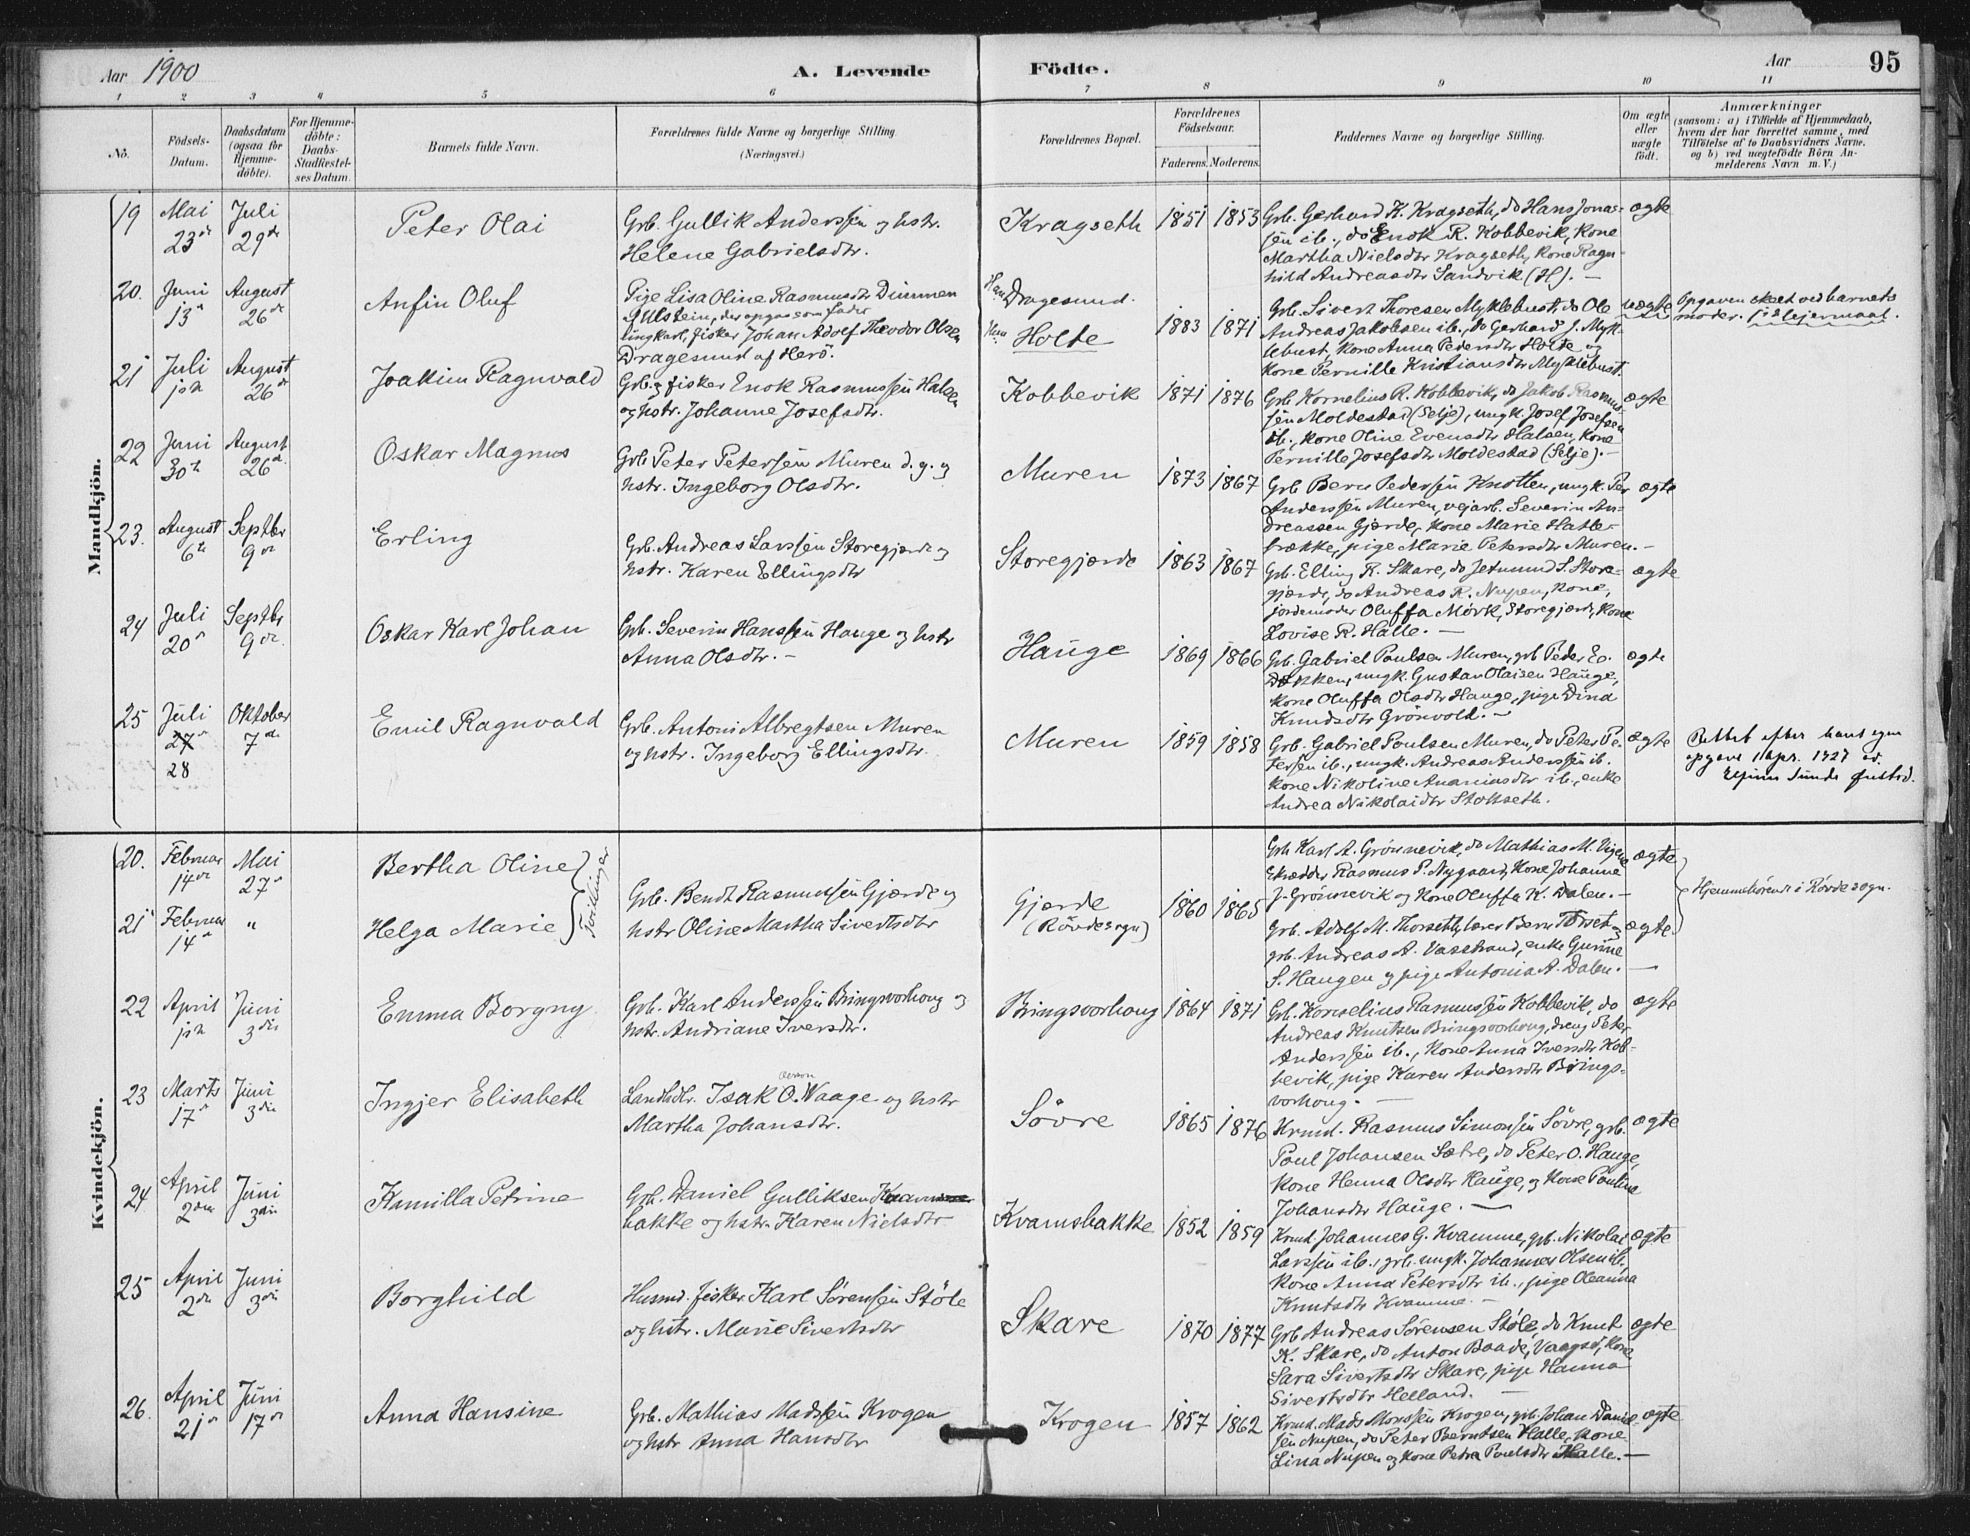 Aar 1900
A. Levende Födte.
Aar
95
1 2 3 4 5 6 7 8 9 10 11
No.
Födsels-
Datum.
Daabsdatum
(ogsaa for
Hjemme-
döbte).
For Hjemme-
döbte:
Daabs-
Stadfæstel-
ses Datum.
Barnets fulde Navn.
Forældrenes fulde Navne og borgerlige Stilling.
(Næringsvei.)
Forældrenes Bopæl.
Forældrenes
Födselsaar.
Faderens. Moderens.
Faddernes Navne og borgerlige Stilling.
Om ægte
eller
uægte
födt.
Anmærkninger
(saasom: a) i Tilfælde af Hjemmedaab,
hvem der har forrettet samme, med
Tilföielse af to Daabsvidners Navne,
og b) ved uægtefödte Börn An-
melderens Navn m. V.)
Mandkjön.
19 Mai 23de Juli 29de
Peter Olai
Grb. Gullik Anderssen og hstr.
Helene Gabrielsdtr.
Kragseth 1851 1853
Grb. Gerhard K. Kragseth, do Hans Jonas-
sen ib., do Enok R. Kobbevik, kone
Martha Nielsdtr Kragseth, kone Ragn-
hild Andreasdtr Sandvik (H). –
ægte
20. Juni 13de August 26de
Anfin Oluf
Pige Lisa Oline Rasmusdtr Dimmen
Ulstein, der opgav som fader
ungkarl, fisker Johan Adolf Theodor Olsen
Dragesund af Herö.
Dragesund.
Holte 1883 1871
Grb. Sivert Thoresen Myklebust, do Ole
Andreas Jakobsen ib., do Gerhard J. Myk-
lebust, kone Anna Pedersdtr Holte og
kone Pernille Kristiansdtr Myklebust.
uægte
Opgaven skeet ved barnets
moder. 1ste lejermaal.
21 Juli August 26de
Joakim Ragnvald
Grb. og fisker Enok Rasmussen Halsen
og hstr. Johanne Josefsdtr.
Kobbevik 1871 1876
Grb Kornelius R. Kobbevik, do Jakob Rasmus-
sen Moldestad (Selje), ungk. Josef Josefsen
ib., kone Oline Evensdtr Halsen, kone
Pernille Josefsdtr Moldestad (Selje). –
ægte
22 Juni 30te August 26de
Oskar Magnus
Grb Peter Petersen Muren d. y. og
hstr. Ingeborg Olsdtr.
Muren 1873 1867
Grb Bern Pedersen Knotten, ungk. Per
Anderssen Muren, vejarb. Severin An-
dreassen Gjærde, kone Marie Hatle-
brække, pige Marie Petersdtr Muren. –
ægte
23. August 6te Septbr 9de
Erling
Grb. Andreas Larssen Storegjærde og
hstr. Karen Ellingsdtr
Storegjærde 1863 1867
Grb. Elling R. Skare, do Jetmund S. Store-
gjærde, do Andreas R. Nupen, kone,
jordemoder Oluffa Mörk, Storegjærde, kone
Lovise R. Halle. –
ægte
24 Juli 20de Septbr 9de
Oskar Karl Johan
Grb. Severin Hanssen Hauge og hstr
Anna Olsdtr. –
Hauge 1869 1866
Grb. Gabriel Poulsen Muren, grb Peder
ungk. Gustav Olaisen Hauge,
kone Oluffa Olsdtr Hauge, pige Dina
Knudsdtr Grönvold. –
ægte
25 Juli 27de 28 Oktober 7de
Emil Ragnvald
Grb. Antoni Albregtsen Muren
og hstr. Ingeborg Ellingsdtr.
Muren 1859 1858
Grb. Gabriel Poulsen Muren, do Peter Pe-
tersen ib., ungk. Andreas Anderssen ib.
kone Nikoline Ananiasdtr ib., enke
Andrea Nikolaidtr Stokseth.
ægte
Rettet efter hans egen
opgave 11 apr. 1927
Kvindekjön.
20. Februar 14de Mai 27de
Bertha Oline
21 Februar 14de "
Helga Marie
Tvillinger
Grb. Bendt Rasmussen Gjærde og
hstr Oline Martha Sivertsdtr
Gjerde
(Rövdesogn) 1860 1865
Grb Karl A. Grönnevik, do Mathias M. Vigen
Skrædder Rasmus P. Nygaard, kone Johanne
J. Grönnevik og kone Oluffa K. Dalen. –
Grb. Adolf M. Thorseth, lærer Bern Törset og
grb. Andreas A. Vasstrand, enke Gurine
S. Haugen og pige Antonia A. Dalen. –
ægte
ægte.
Hjemmehörende i Rövdesogn.
22 April Juni 3die
Emma Borgny
Grb. Karl Anderssen Bringsvorhoug og
hstr. Andriane Iversdtr.
Bringsvorhoug 1864 1871
Grb. Kornelius Rasmussen Kobbevik, do
Andreas Knutsen Bringsvorhoug, dreng Peter
Anderssen ib., kone Anna Iversdtr Kob-
bevik, pige Karen Andersdtr Brings-
vorhoug. –
ægte
23 Marts 17de Juni 3die
Ingjer Elisabeth
Landhdlr. Isak O. Waage og hstr
Martha Johansdtr.
Sövre 1865 1876
Krmd. Rasmus Simonsen Sövre, grb.
Poul Johansen Sætre, do Peter O. Hauge,
kone Henna Olsdtr Hauge, og kone Pauline
Johansdtr Hauge. –
ægte
24 April 2den Juni 3die
Kamilla Petrine
Grb. Daniel Gulliksen
bakke og hstr. Karen Nielsdtr
Kvamsbakke 1852 1859
Krmd. Johannes G. Kvamme, grb. Nikolai
Larssen ib., grb. ungk. Johannes Olsen ib,
kone Anna Petersdtr ib., pige Oleanna
Knutsdtr Kvamme. –
ægte
25 April 2den Juni 3die
Borghild
Husmd. fisker Karl Sörensen Stöle
og hstr. Marie Sivertsdtr
Skare 1870 1877
Grb Andreas Sörensen Stöle, do Knut
K. Skare, do Anton Baade, Vaagsö, kone
Sara Sivertsdtr Skare, pige Hanna
Sivertsdtr Helland. –
ægte
26. April 21de Juni 17de
Anna Hansine
Grb. Mathias Madssen Krogen
og hstr Anna Hansdtr
Krogen 1857 1862
Krmd. Mads Monssen Krogen, grb. Johan Daniel-
sen Nupen, do Peter Berntsen Halle, kone
Lina Nupen og kone Petra Poulsdtr Halle. –
ægte